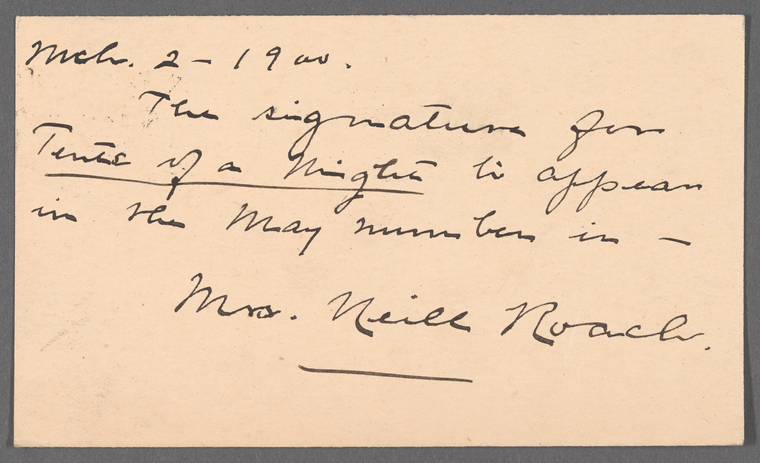 Mch. 2 - 1900.
The signature for
Tents of a Night to appear
in the May number is -
Mrs. Neill Roach.